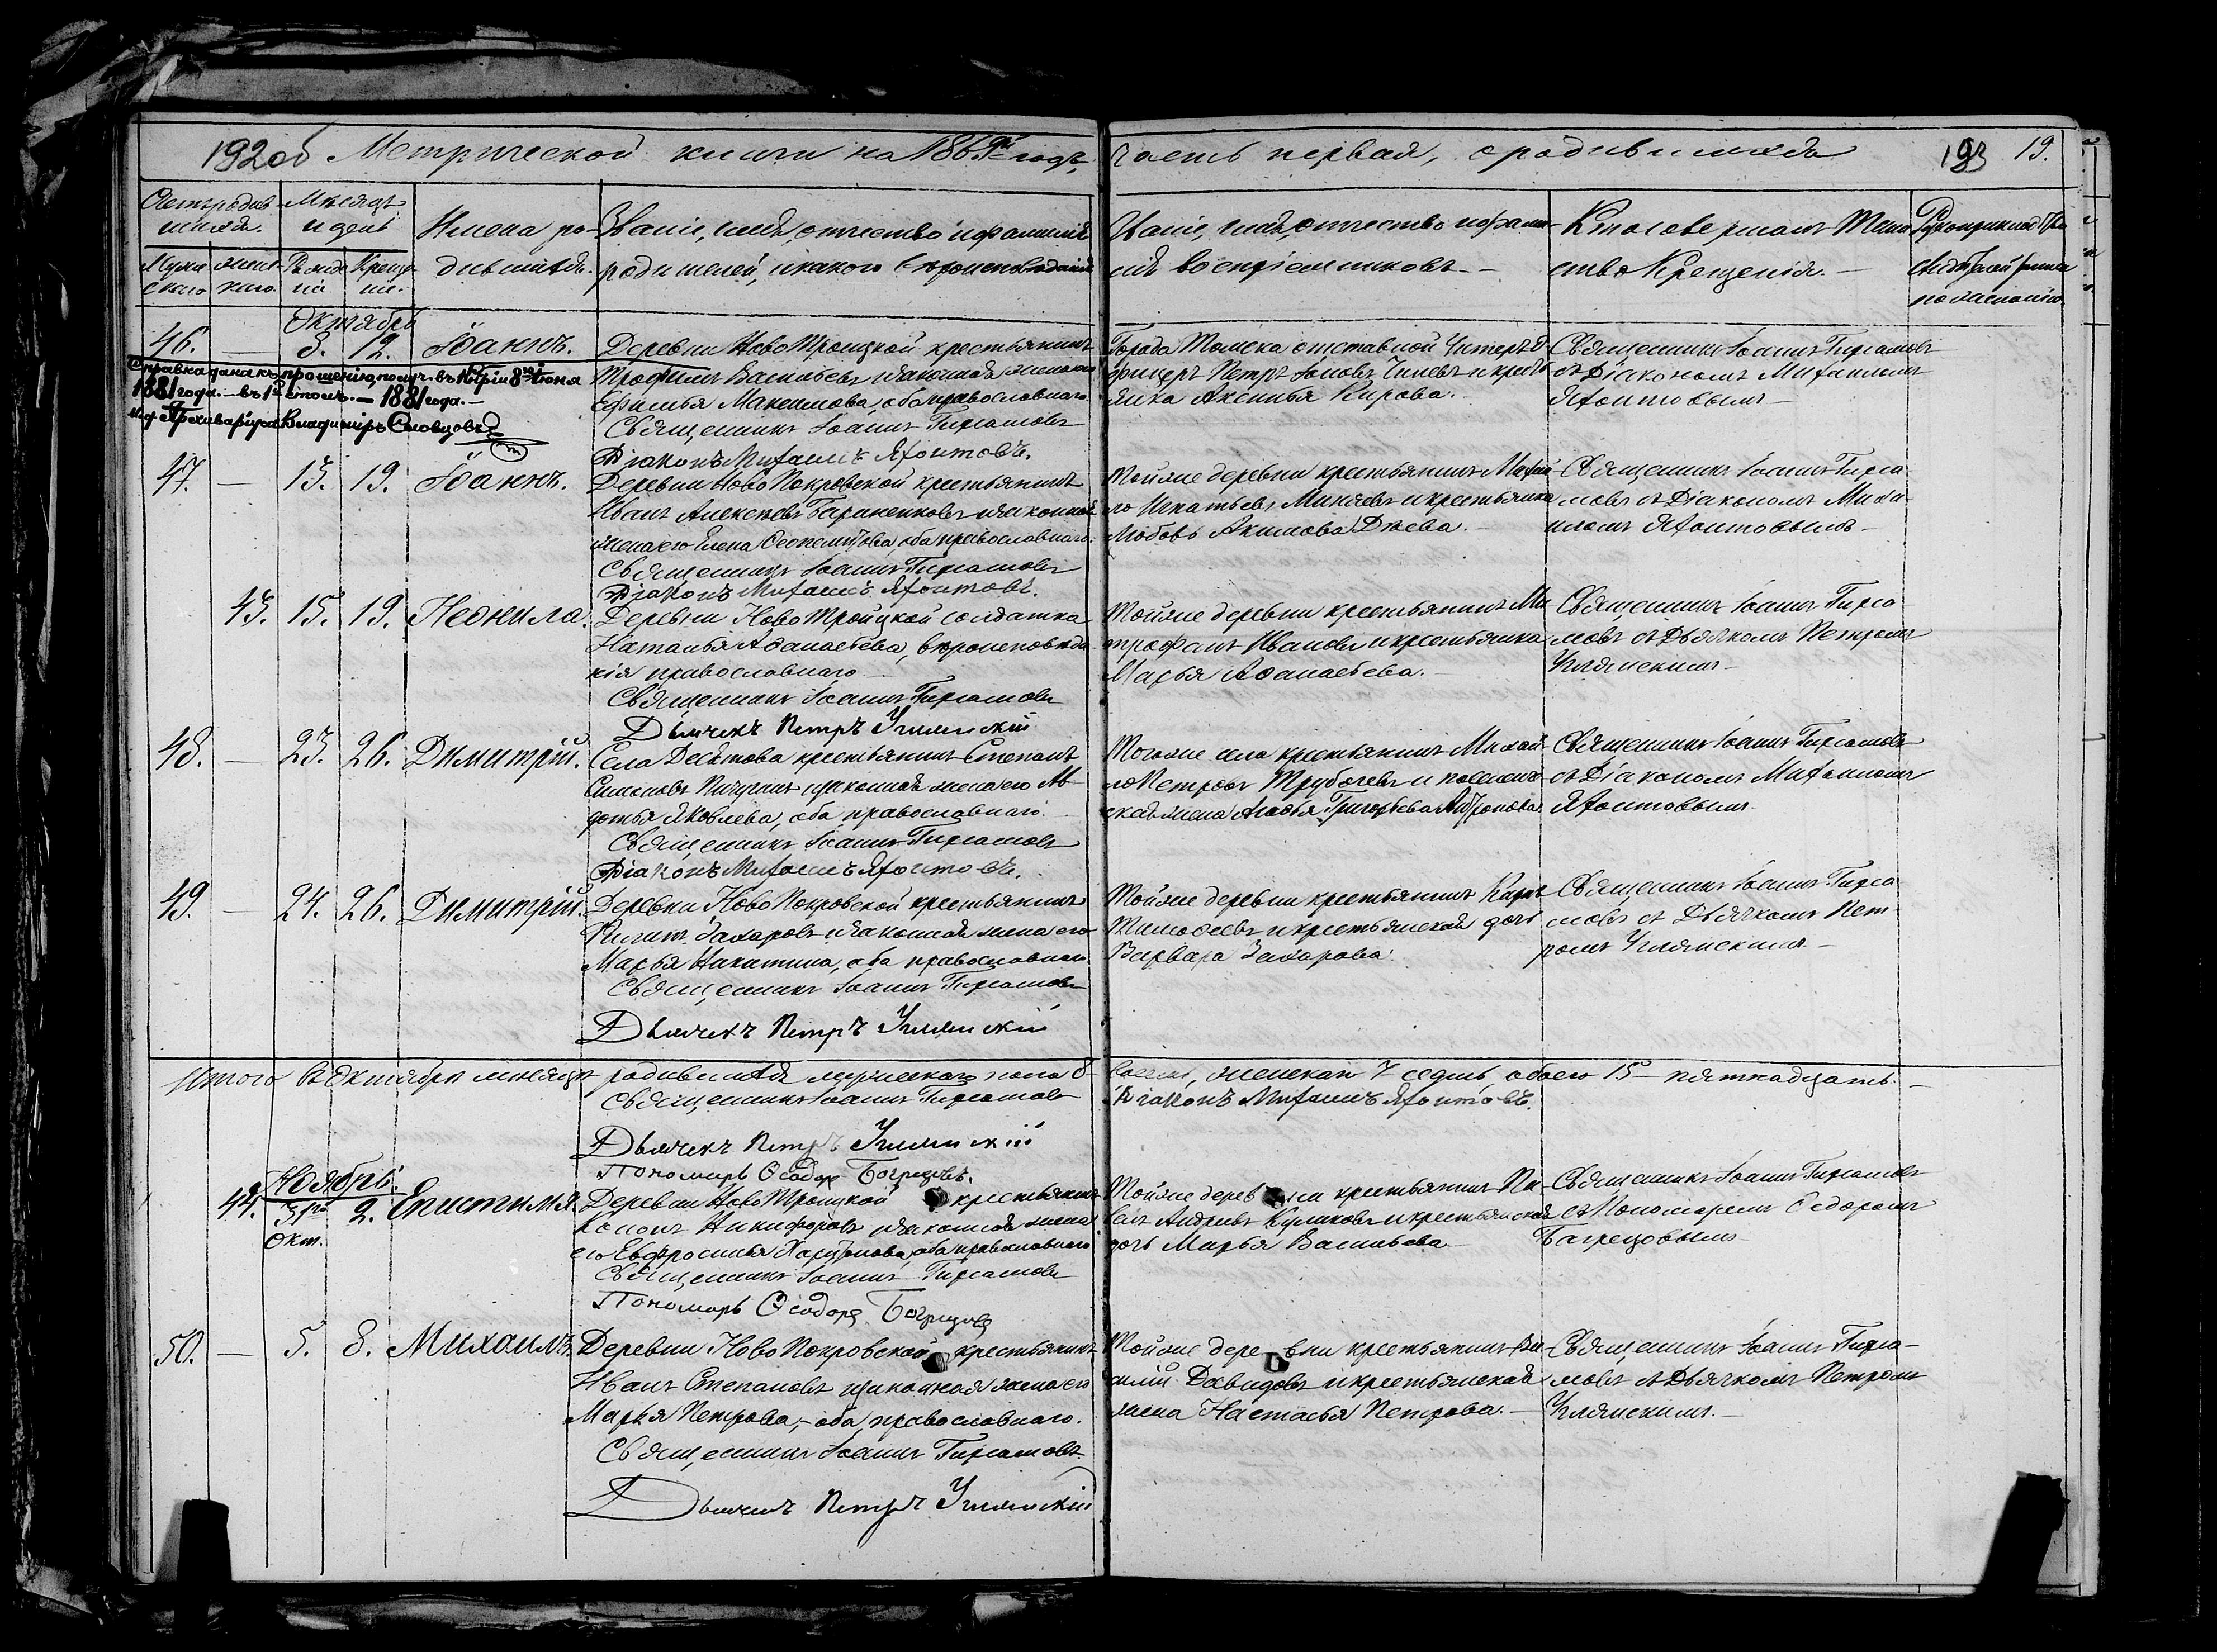 192об Метрической книги на 1869й годъ, часть первая, о родившихся 193 19.
Счетъ родив-
шихся.
Мѣсяцъ
и день
Имена ро-
дившихся.
Званіе, имя, отчество и фамилія
родителей, и какого вѣроисповѣданія
Званіе, имя, отчество и фами-
лія воспріемниковъ.
Кто совершалъ Таин-
ство Крещенія.
Муже
скаго
жен-
скаго
Рожде
нія
Креще
нія.
Октябрь
46. — 8. 12. Іоаннъ.
Деревни НовоТроицкой крестьянинъ
Трофимъ Васильевъ и законная жена его
Ефимья Максимова, оба православнаго.
Священникъ Іоаннъ
Діаконъ Михаилъ Яхонтовъ.
Города Томска отставной Унтеръ О-
фицеръ Петръ и кресть
янка Аксинья Кирова.
Священникъ Іоаннъ
съ Діакономъ Михаиломъ
Яхонтовымъ
Справка дана къ прошенію, получ. въ 8го Іюня
1881 года. — въ 1й столъ. — 1881 года. —
Архиваріуса Владиміръ Словцовъ
47. — 13. 19. Іоаннъ.
Деревни Ново Покровской крестьянинъ
Иванъ Алексѣевъ и законная
жена его Елена оба православнаго.
Священникъ Іоаннъ
Діаконъ Михаилъ Яхонтовъ.
Тойже деревни крестьянинъ Михай-
ло Игнатьевъ Миняевъ и крестьянка
Любовь Акимова
Священникъ Іоаннъ
съ Діакономъ Миха-
иломъ Яхонтовымъ
43. 15. 19. Неонила.
Деревни НовоТройцкой солдатка
Наталья Аѳанасьева, вѣроисповѣда-
нія православнаго
Священникъ Іоаннъ
Дьячекъ Петръ Углянскій
Тойже деревни крестьянинъ Ми-
трофанъ Ивановъ и крестьянка
Марья Аѳанасьева.
Священникъ Іоаннъ
съ Дьячкомъ Петромъ
Углянскимъ
48. — 23. 26. Димитрій.
Села Десятова крестьянинъ Степанъ
Симоновъ Пичугинъ и законная жена его Ав-
дотья Яковлева, оба православнаго.
Священникъ Іоаннъ
Діаконъ Михаилъ Яхонтовъ.
Тогоже села крестьянинъ Михай-
ло Петровъ Трубачевъ и поселен-
ская жена Агафья Григорьева
Священникъ Іоаннъ
съ Діакономъ Михаиломъ
Яхонтовымъ
49. — 24. 26. Димитрій.
Деревни НовоПокровской крестьянинъ
Захаровъ и законная жена его
Марья Никитина, оба православнаго
Священникъ Іоаннъ
Дьячекъ Петръ Углянскій
Тойже деревни крестьянинъ
Тимоѳеевъ и крестьянская дочь
Варвара Захарова.
Священникъ Іоаннъ
съ Дьячкомъ Пет-
ромъ Углянскимъ
Итого въ Октябрѣ мѣсяцѣ родившихся мужескаго пола 8 восемь, женскаго 7 седмь, обоего 15 — пятнадцать.
Священникъ Іоаннъ
Діаконъ Михаилъ Яхонтовъ.
Дьячекъ Петръ Углянскій
Пономарь Ѳеодоръ Багрецовъ.
Ноябрь.
44. 31го Окт. 2. Епистимія.
Деревни НовоТроицкой крестьянинъ
Кононъ Никифоровъ и законная жена
его Евфросинья Харитонова, оба православнаго
Священникъ Іоаннъ
Пономарь Ѳеодоръ Багрецовъ
Тойже деревни крестьянинъ Па-
велъ Андреевъ Куликовъ и крестьянская
дочь Марья Васильева
Священникъ Іоаннъ
съ Пономаремъ Ѳедоромъ
Багрецовымъ
50. — 5. 8. Михаилъ.
Деревни НовоПокровской крестьянинъ
Иванъ Степановъ и законная жена его
Марья Петрова, — оба православнаго.
Священникъ Іоаннъ
Дьячекъ Петръ Углянскій
Тойже деревни крестьянинъ Ва-
силій Давидовъ и крестьянская
жена Настасья Петрова. —
Священникъ Іоаннъ
съ Дьячкомъ Петромъ
Углянскимъ. —